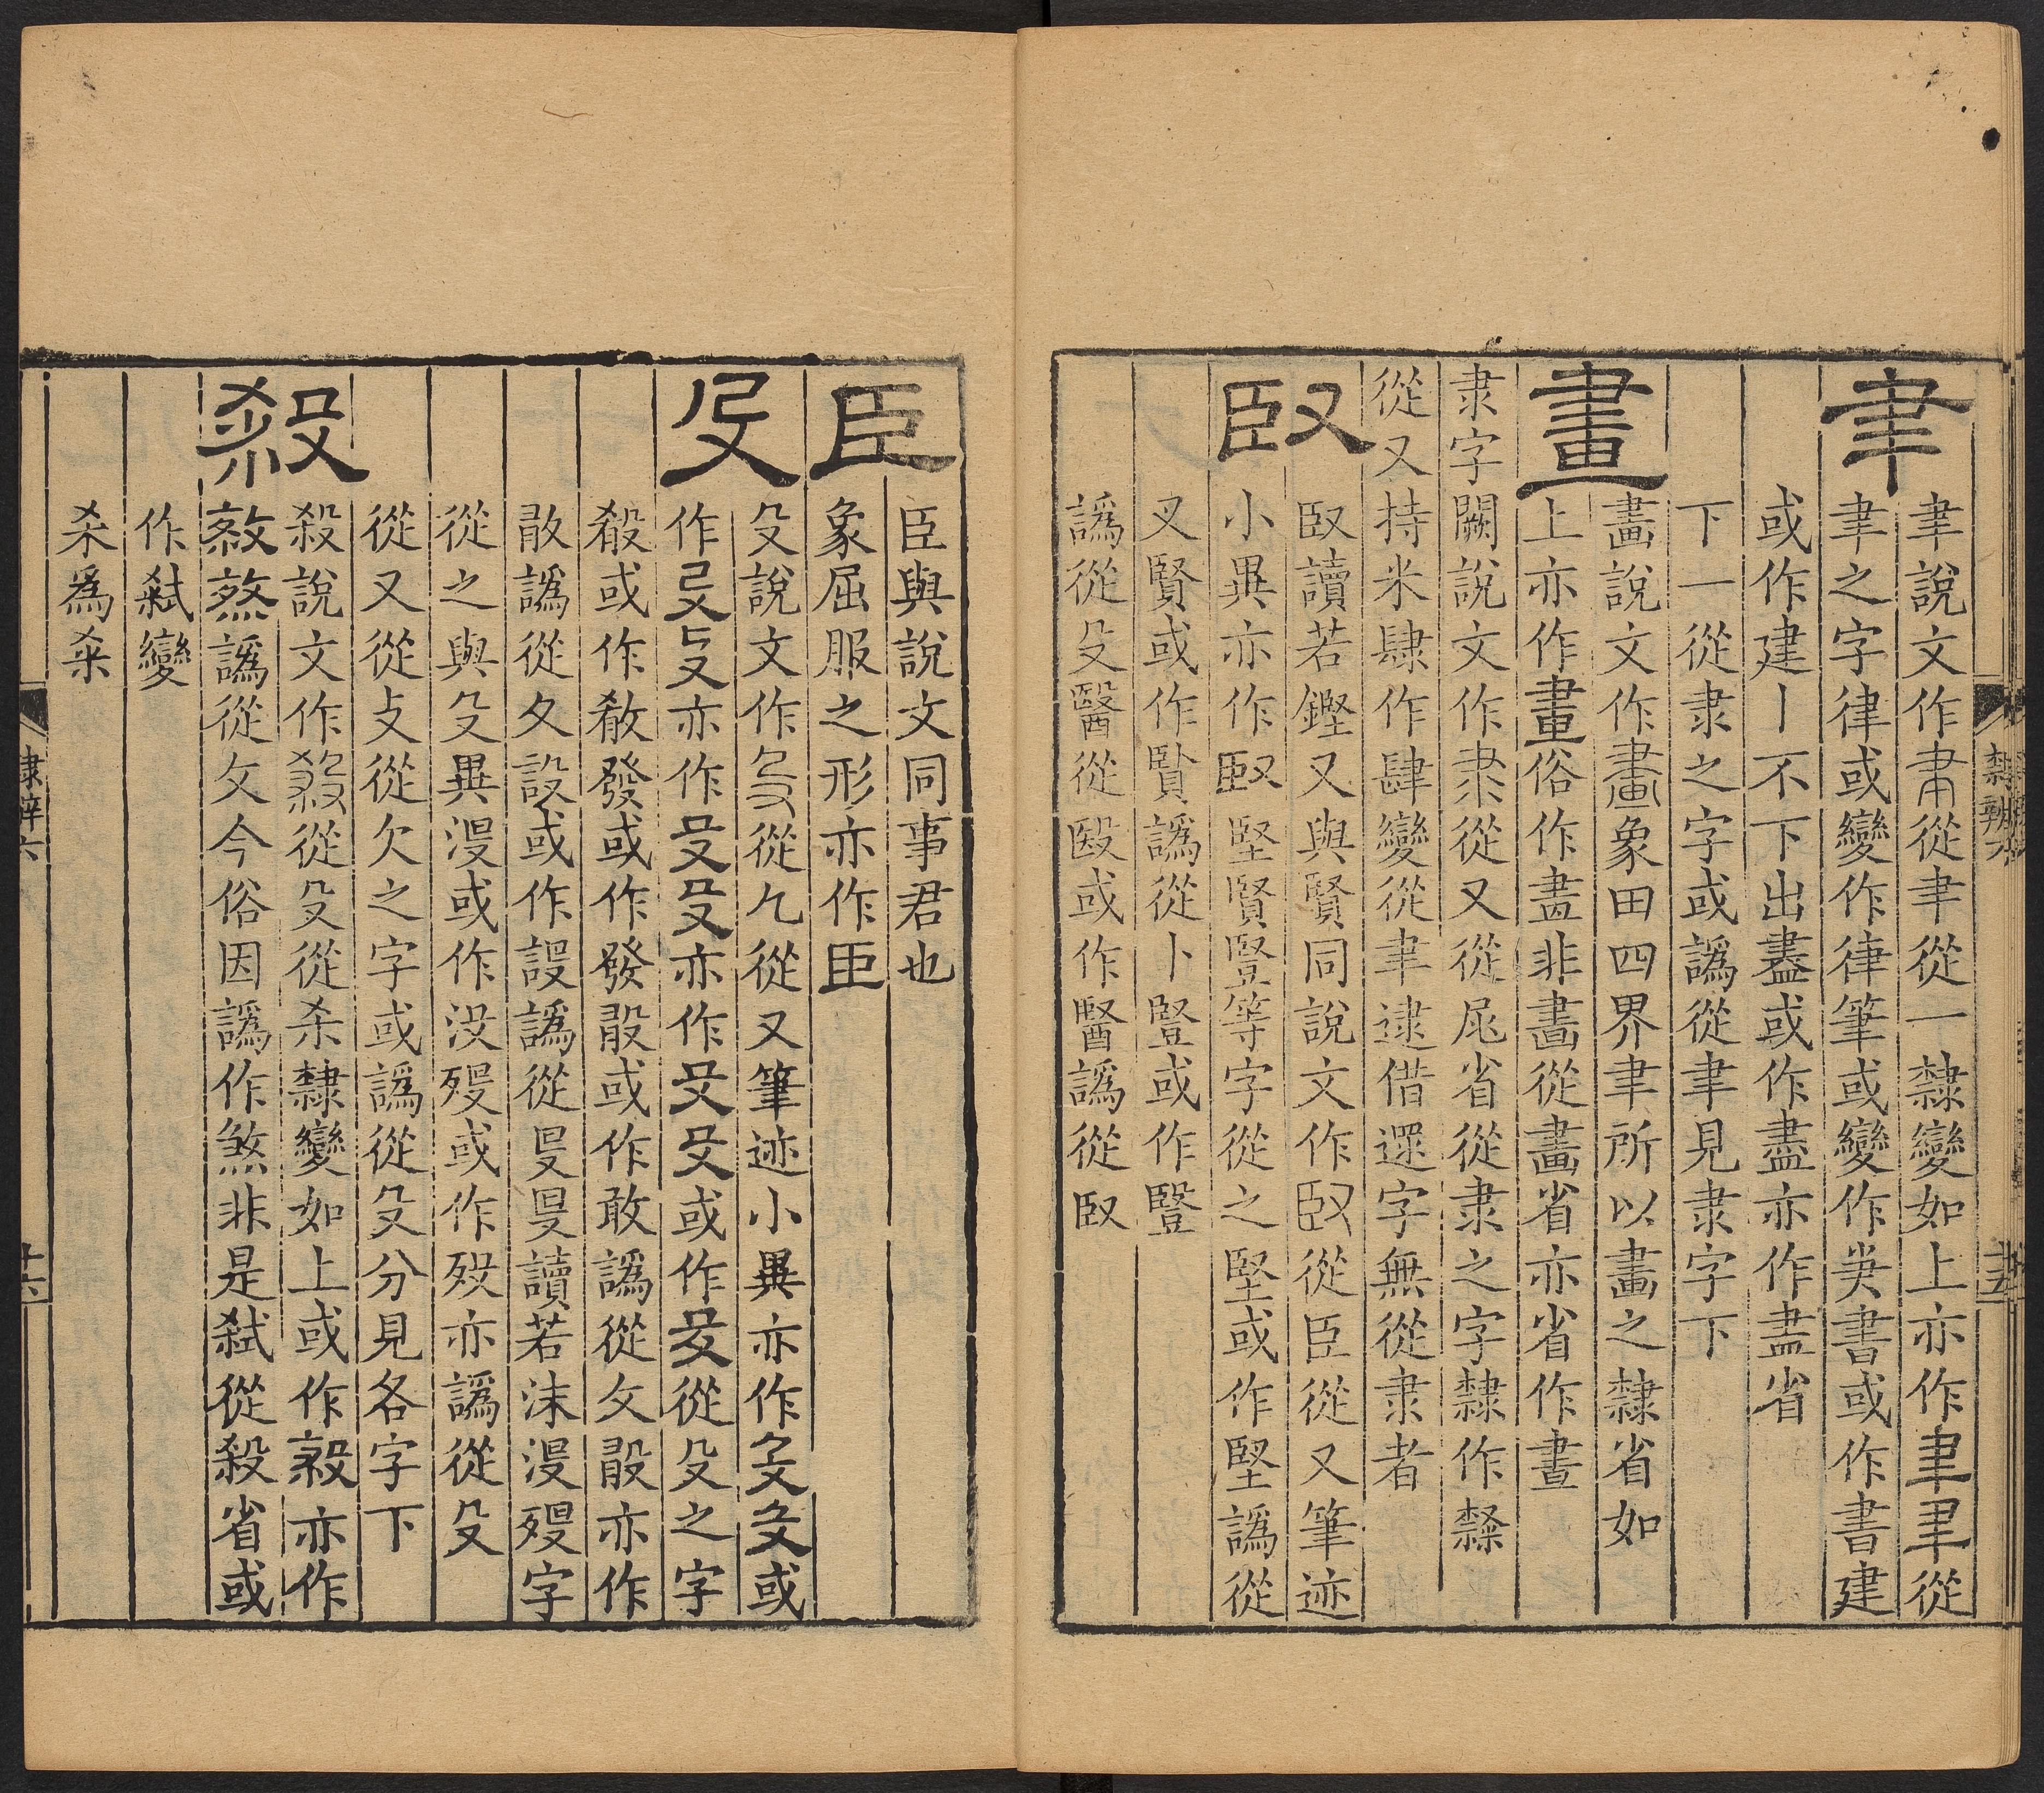 聿
聿說文作𦘒從𦘒從一隸變如上亦作聿肀從
聿之字律或變作律筆或變作筆書或作書建
或作建丨不下出盡或作盡亦作盡省
下一從隶之字或譌從聿見隶字下
畫
畫說文作畫象田四界聿所以畫畫之隸省如
上亦作畫俗作盡非畫從畫省亦省作晝
隶字闕說文作隶從又從㞑省從隶之字隸作隸
從又持米肆作肆變從聿逮借還字無從隶者
臤
臤讀若鏗又與賢同說文作臤從臣從又筆迹
小異亦作臤堅賢豎等字從之堅或作堅譌從
叉賢或作賢譌從卜豎或作豎
譌從殳醫從殹或作醫譌從臤
隸辨六
十五
臣
臣與說文同事君也
象屈服之形亦作臣
殳
殳說文作殳從几從又筆迹小異亦作殳殳或
作殳殳亦作殳殳亦作殳殳或作殳從殳之字
殽或作殽發或作發股或作敢譌從攵股亦作
敢譌從攵設或作設譌從𠬛𠬛讀若沫漫歿字
從之與殳異沒或作沒歿或作歿亦譌從殳
從又從攴從欠之字或譌從殳分見各字下
殺
殺說文作殺從殳從杀隸變如上或作殺亦作
䋈煞譌從攵今俗因譌作煞非是弒從殺省或
作弒變
杀爲杀
隸辨六
十六